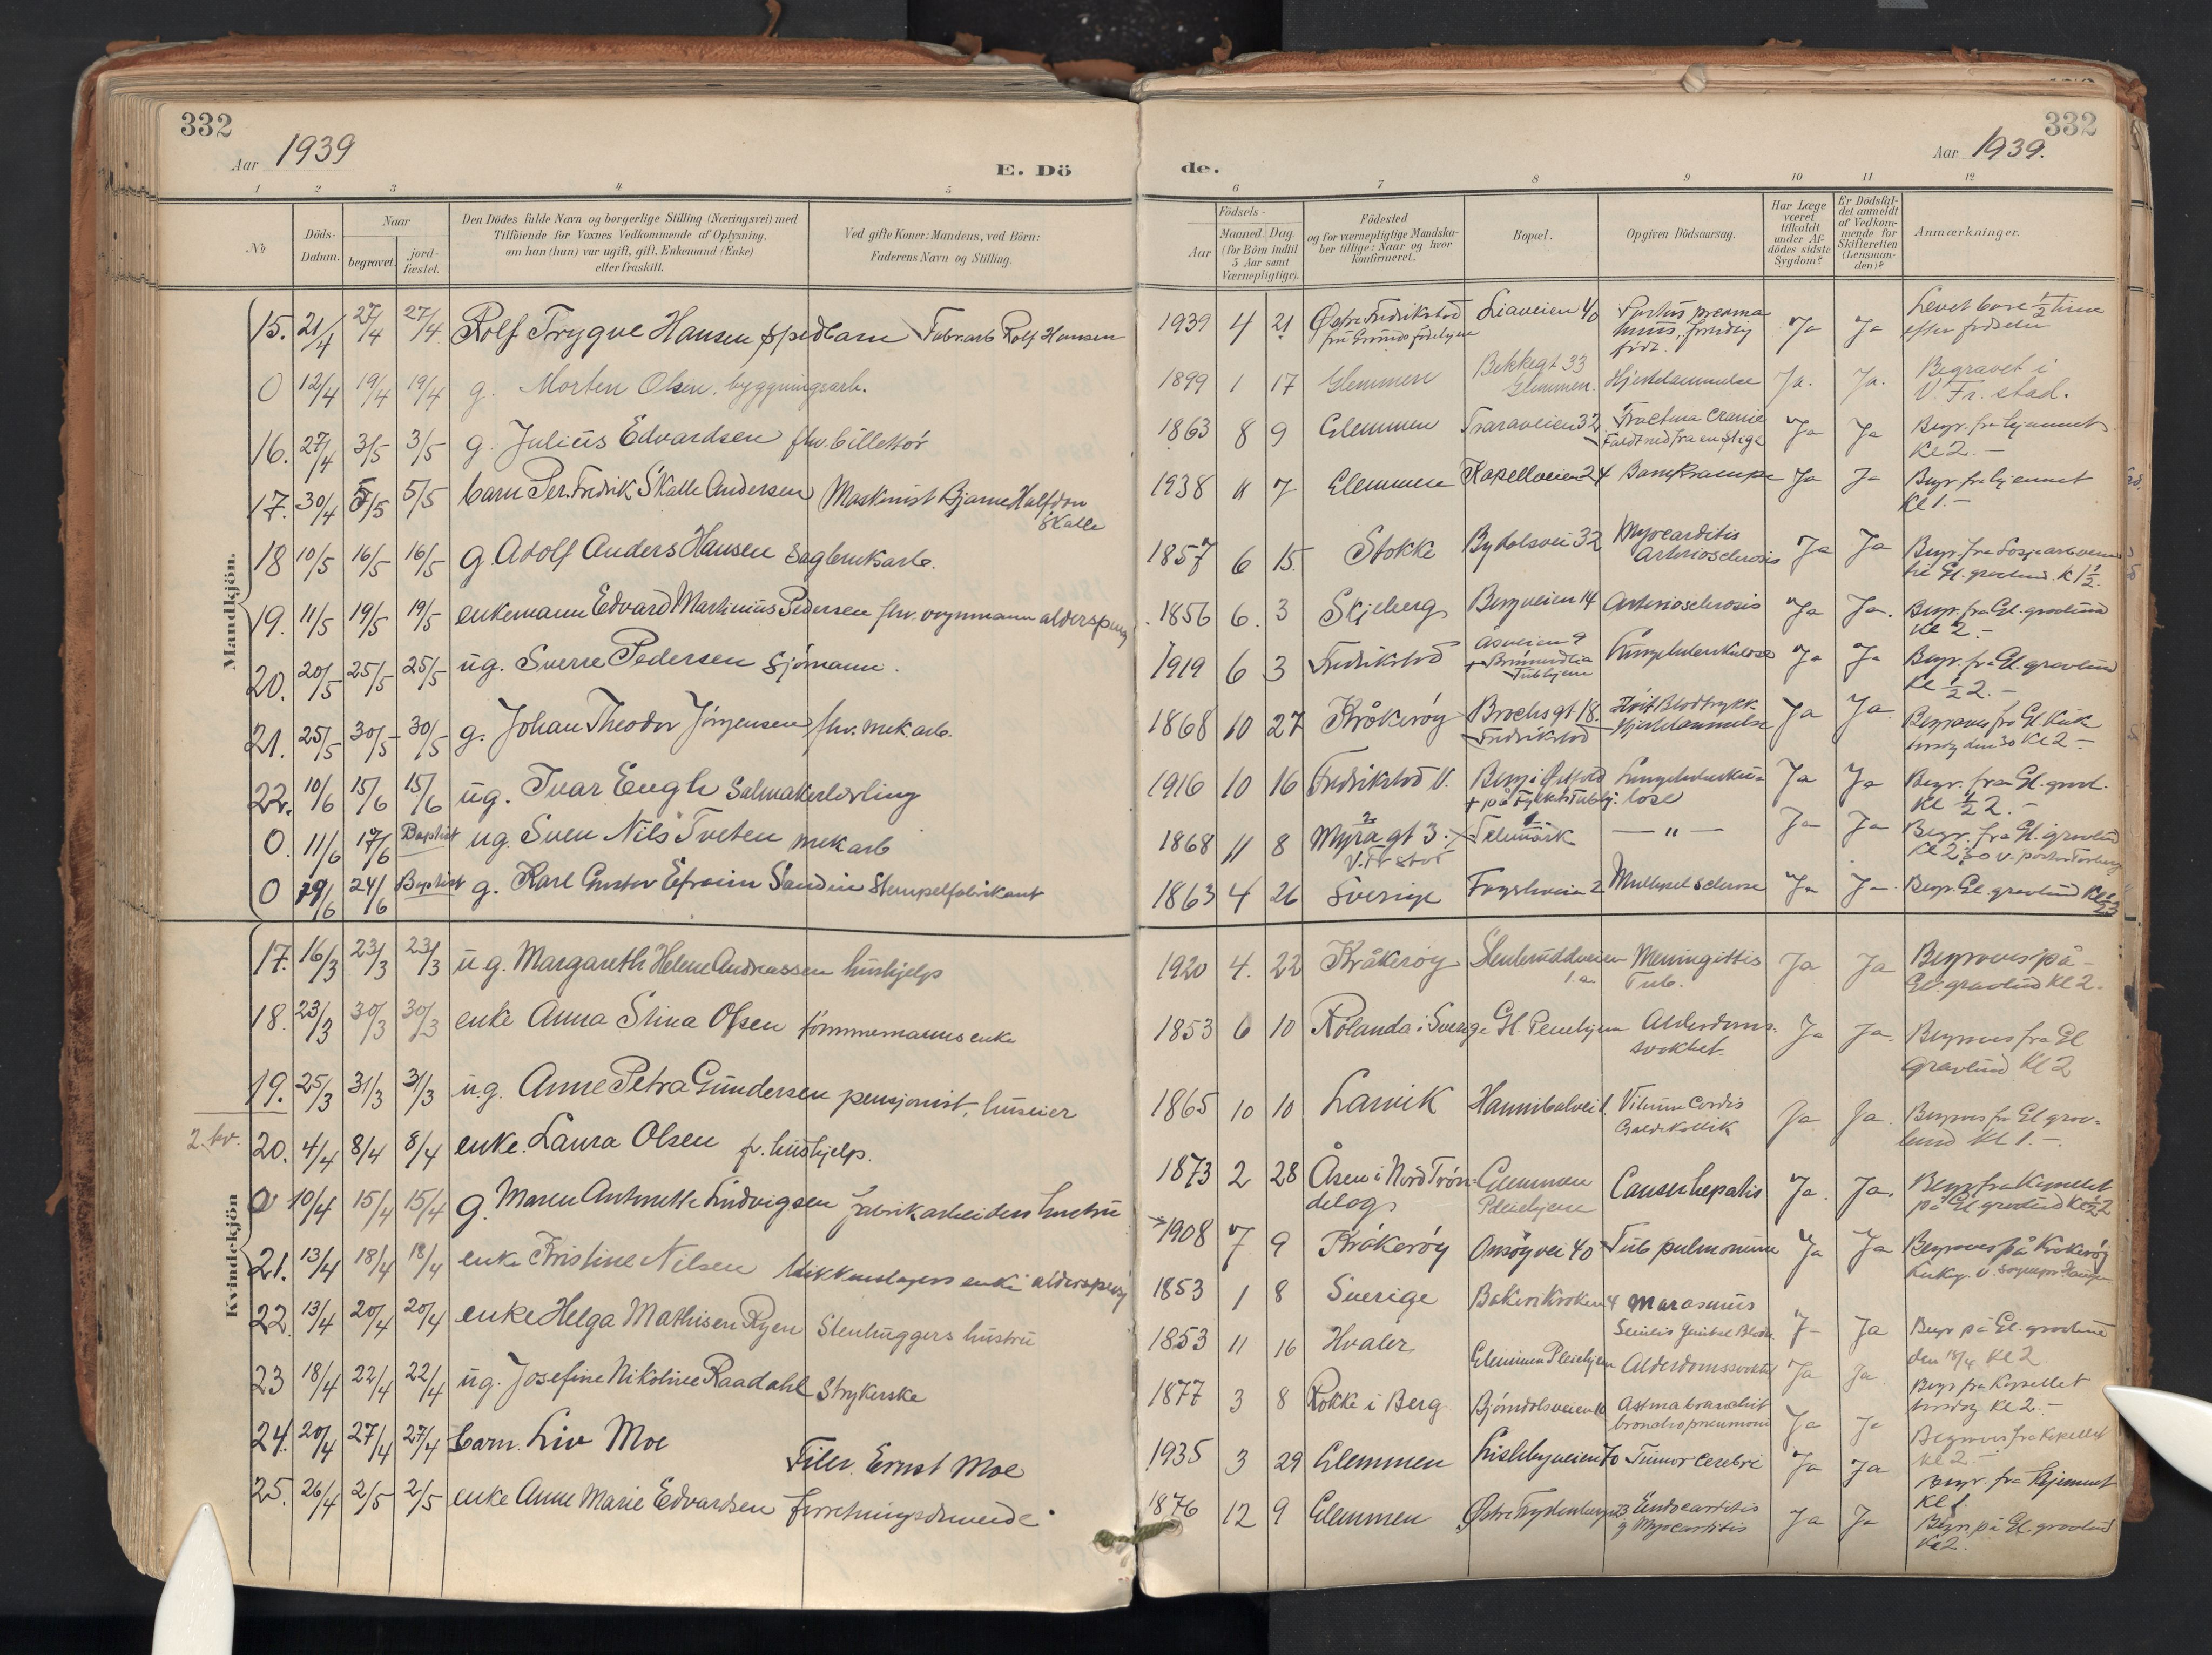 332
Aar 1939
E. Dö
1 2 3 4 5
No
Döds-Datum.
Naar
begravet.
jord-fæstet.
Den Dödes fulde Navn og borgerlige Stilling (Næringsvei) med
Tilföiende for Voxnes Vedkommende af Oplysning,
om han (hun) var ugift, gift, Enkemand (Enke)
eller fraskilt.
Ved gifte Koner: Mandens, ved Börn:
Faderens Navn og Stilling.
Mandkjön.
15. 21/4 27/4 27/4 Rolf Trygve Hansen spedbarn Fabr.arb Rolf Hansen
0 12/4 19/4 19/4 g. Morten Olsen, byggningsarb.
16. 27/4 3/5 3/5 g. Julius Edvardsen fhv. billettør
17. 30/4 5/5 5/5 barn Per Fredrik Skalle Andersen Maskinist Bjarne Halfdan
Skalle
18 10/5 16/5 16/5 g. Adolf Anders Hansen Sagbruksarb.
19. 11/5 19/5 19/5 enkemann Edvard Martinius Pedersen fhv. vognmann alderspensj
20. 20/5 25/5 25/5 ug. Sverre Pedersen Sjømann.
21. 25/5 30/5 30/5 g. Johan Theodor Jørgensen fhv. mek arb.
22. 10/6 15/6 15/6 ug. Ivar Eugh Salmakerlærling
0. 11/6 17/6 Baptist ug. Sven Nils Tveten mek arb
0 19/6 24/6 Baptist g. Karl Gustav Efraim Sandin Stempelfabrikant
Kvindekjön
17. 16/3 23/3 23/3 ug. Margareth Helene Andreassen hushjelp
18. 23/3 30/3 30/3 enke Anna Stina Olsen tømmermanns enke
19. 25/3 31/3 31/3 ug. Anne Petra Gundersen pensjonist, huseier
2. kv. 20. 4/4 8/4 8/4 enke. Laura Olsen fv. hushjelp.
0 10/4 15/4 15/4 g. Maren Antonette Ludvigsen fabrikarbeiders hustru
21. 13/4 18/4 18/4 enke Kristine Nilsen Blikkenslagers enke alderspensj
22. 13/4 20/4 20/4 enke Helga Mathisen Ryen Stenhuggers hustru
23 18/4 22/4 22/4 ug. Josefine Nikoline Raadahl Strykerske
24. 20/4 27/4 27/4 barn. Liv Moe Filer. Ernst Moe
25. 26/4 2/5 2/5 enke Anne Marie Edvardsen forretningsdrivende
332
Aar 1939.
de.
6 7 8 9 10 11 12
Födsels-
Aar
Maaned. Dag.
(for Börn indtil
5 Aar samt
Værnepligtige).
Födested
og for værnepligtige Mandska-
ber tillige: Naar og hvor
konfirmeret.
Bopæl.
Opgiven Dödsaarsag.
Har Læge
været
tilkaldt
under Af-
dödes sidste
Sygdom?
Er Dödsfal-
det anmeldt
af Vedkom-
mende for
Skifteretten
(Lensman-
den)?
Anmærkninger.
1939 4 21 Østre Fredrikstad Liaveien 40 Partus præma Ja Ja Levet bare 1/2 time
født. efter fødselen
1899 1 17 Glemmen Bekkegt 33 Glemmen. Hjertelammelse Ja. Ja. Begravet i
V. Fr. stad.
1863 8 9 Glemmen Traraveien 32 Fractura cranie Ja Ja Begr. fra hjemmet
Faldt ned fra en stige Kl 2.-
1938 11 7 Glemmen Kapellveien 24 Barnekrampe Ja Ja Begr. fra hjemmet
Kl 1.-
1857 6 15. Stokke Bydalsvei 32 Myocarditis Ja Ja
Arteriosclerosis Gl. gravlund. K 1 1/2.
1856 6. 3 Skjeberg Bergveien 14 Arteriosclerosis Ja Ja. Begr. fra Gl. gravlund
Kl 2.-
1919 6 3 Fredrikstad Åsveien 9 Lungetuberkulose Ja Ja Begr. fra Gl. gravlund
Tubhjem Kl 1/2 2.-
1868 10 27 Kråkerøy Brochsgt 18. Høit Blodtrykk Ja Ja Begraves fra Gl. kirke
Fredrikstad Hjertelammelse tirsdag den 30 Kl 2-
1916 10 16 Fredrikstad V. Berg i Østfold Lungetuberku- Ja Ja Begr. fra Gl. gravl.
lose Kl 1/2 2.-
1868 11 8 Myragt 3. Telemark — " — Ja Ja Begr. fra Gl. gravlund
V. Fr stad Kl 2 30
1863 4 26 Sverige Multipel Sclerose Ja Ja Begr. Gl. gravlund Kl 1/2 3
1920 4. 22 Kråkerøy Stenbruddveien Meningittis Ja Ja Begraves på
1.a. Tub. Gl. gravlund Kl 2.
1853 6 10 Rølanda i Sverige Gl. Pleiehjem Alderdoms- Ja Ja. Begraves fra Gl
svekket. Gravlund Kl 2
1865 10 10 Larvik Hannibalvei 1 Vitium Cordis Ja Ja. Begraves fra Gl grav-
lund Kl 1.-
1873 2 28 Åsen i Nord Trøn- Glemmen Cancer hepatis Ja. Ja. Begr fra Kapellet
delag Pleiehjem på Gl. gravlund Kl 1/2 2
1908 7 9 Kråkerøy Onsøyvei 40 Tub pulmonum Ja Ja Begraves på Kråkerøy
1853 1 8 Sverige Bakerikroken 4 Marasmus J- Ja Begr på Gl. gravlund
den 18/4 Kl 2
1853 11 16 Hvaler Glemmen Pleiehjem Alderdomssvekket Ja Ja Begr fra Kapellet
tirsdag Kl 2.-
1877 3 8 Rokke i Berg Bjørndalsveien 10 Astma bronchit Ja Ja Begraves fra Kapellet
bronchopneumoni Kl 2.-
1935 3 29 Glemmen Lislebyveien 70 Tumor cerebri Ja Ja Begr. fra Hjemmet
Kl 1.
1876 12 9 Glemmen Endocarditis Ja Ja Begr. på Gl. gravlund
og Myocarditis Kl 2.